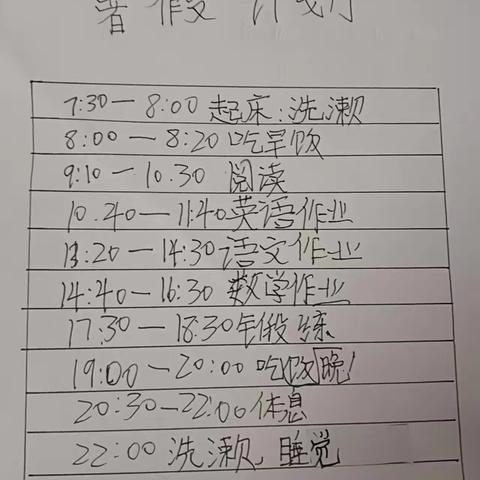 暑假 计划
7:30—8:00 起床:洗漱
8:00—8:20 吃早饭
9:10—10.30 阅读
10.40—11:40 英语作业
13:20—14:30 语文作业
14:40—16:30 数学作业
17:30—18:30 锻练
19:00—20:00 吃饭晚
20:30—22:00 休息
22:00 洗漱, 睡觉